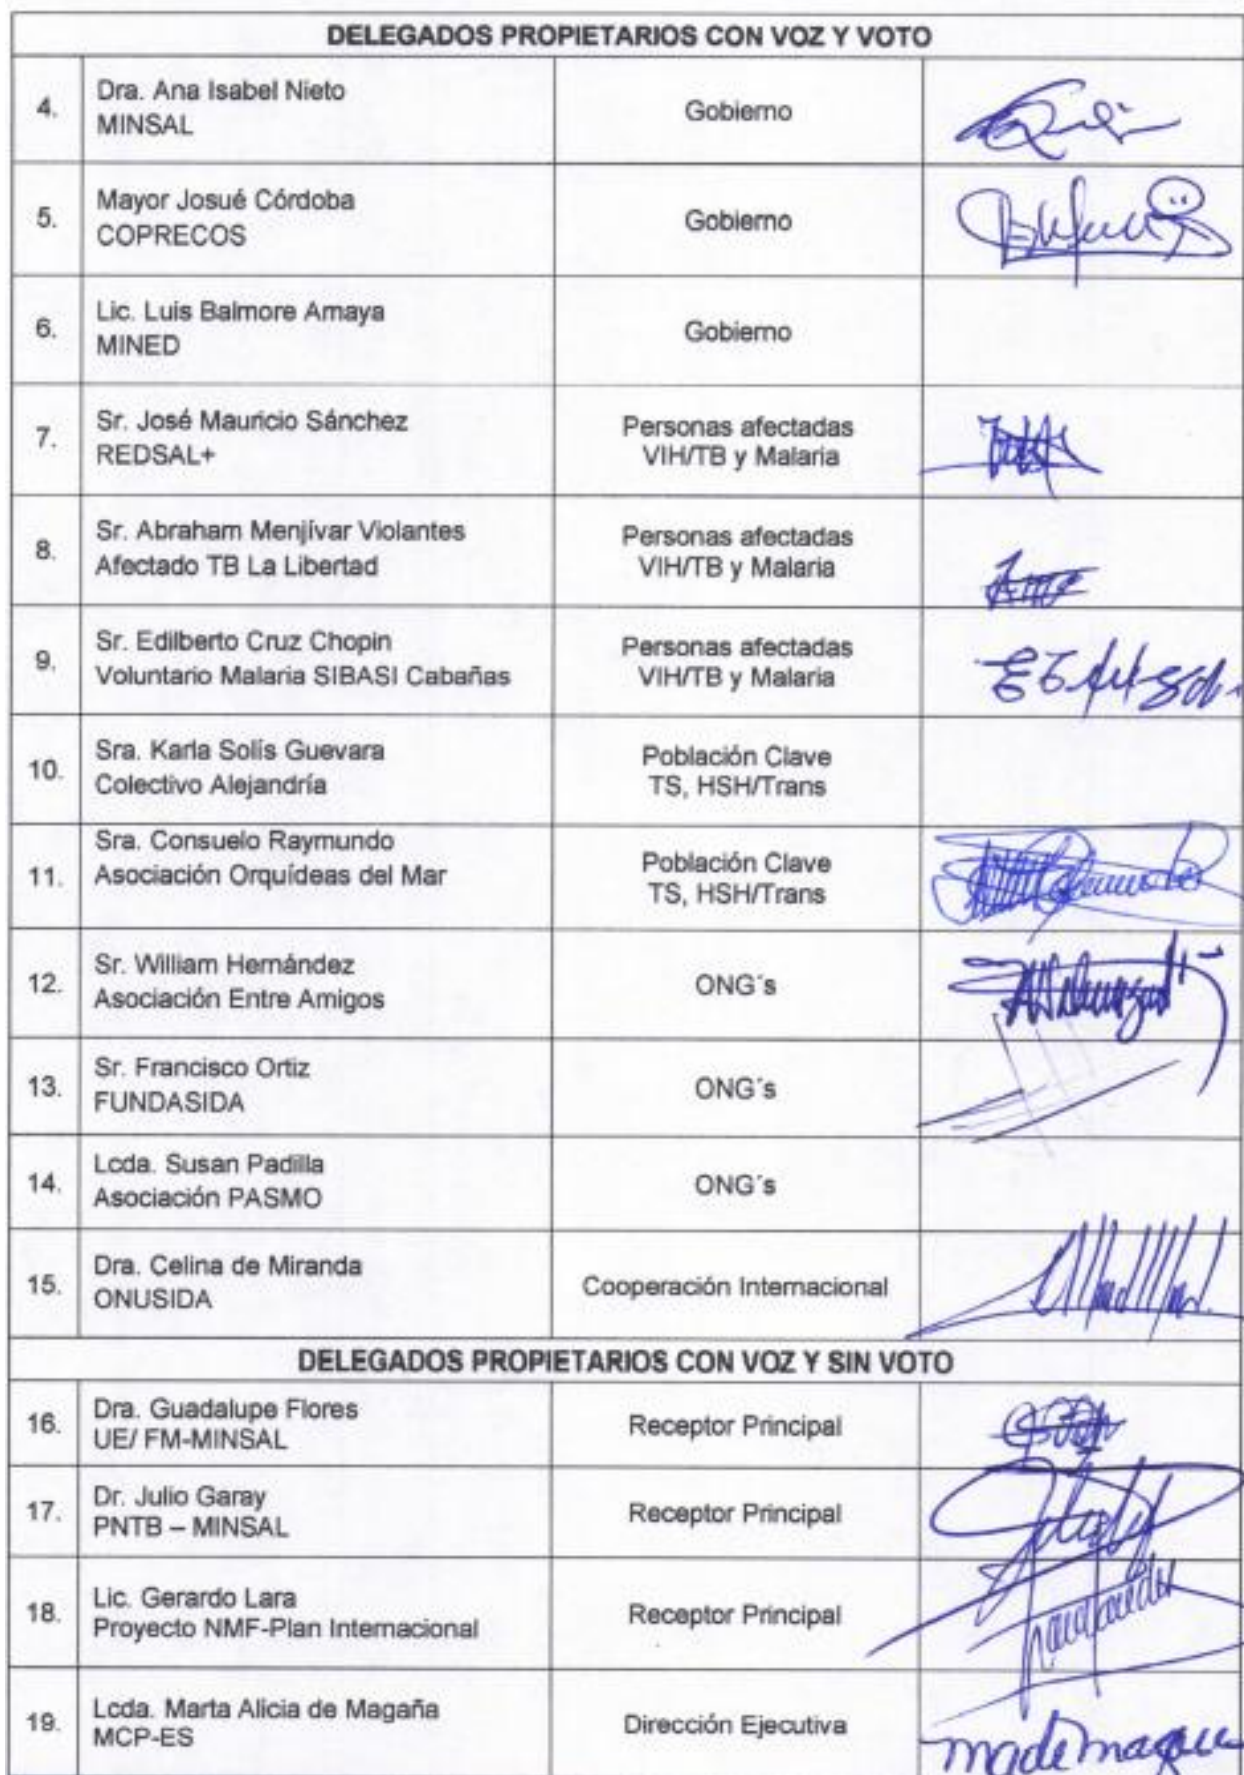 DELEGADOS PROPIETARIOS CON VOZ Y VOTO
4.
Dra. Ana Isabel Nieto
MINSAL
Gobierno
5.
Mayor Josué Córdoba
COPRECOS
Gobierno
6.
Lic. Luis Balmore Amaya
MINED
Gobierno
7.
Sr. José Mauricio Sánchez
REDSAL+
Personas afectadas
VIH/TB y Malaria
8.
Sr. Abraham Menjívar Violantes
Afectado TB La Libertad
Personas afectadas
VIH/TB y Malaria
9.
Sr. Edilberto Cruz Chopin
Voluntario Malaria SIBASI Cabañas
Personas afectadas
VIH/TB y Malaria
10.
Sra. Karla Solís Guevara
Colectivo Alejandría
Población Clave
TS, HSH/Trans
11.
Sra. Consuelo Raymundo
Asociación Orquídeas del Mar
Población Clave
TS, HSH/Trans
12.
Sr. William Hernández
Asociación Entre Amigos
ONG´s
13.
Sr. Francisco Ortiz
FUNDASIDA
ONG´s
14.
Lcda. Susan Padilla
Asociación PASMO
ONG´s
15.
Dra. Celina de Miranda
ONUSIDA
Cooperación Internacional
DELEGADOS PROPIETARIOS CON VOZ Y SIN VOTO
16.
Dra. Guadalupe Flores
UE/ FM-MINSAL
Receptor Principal
17.
Dr. Julio Garay
PNTB – MINSAL
Receptor Principal
18.
Lic. Gerardo Lara
Proyecto NMF-Plan Internacional
Receptor Principal
19.
Lcda. Marta Alicia de Magaña
MCP-ES
Dirección Ejecutiva